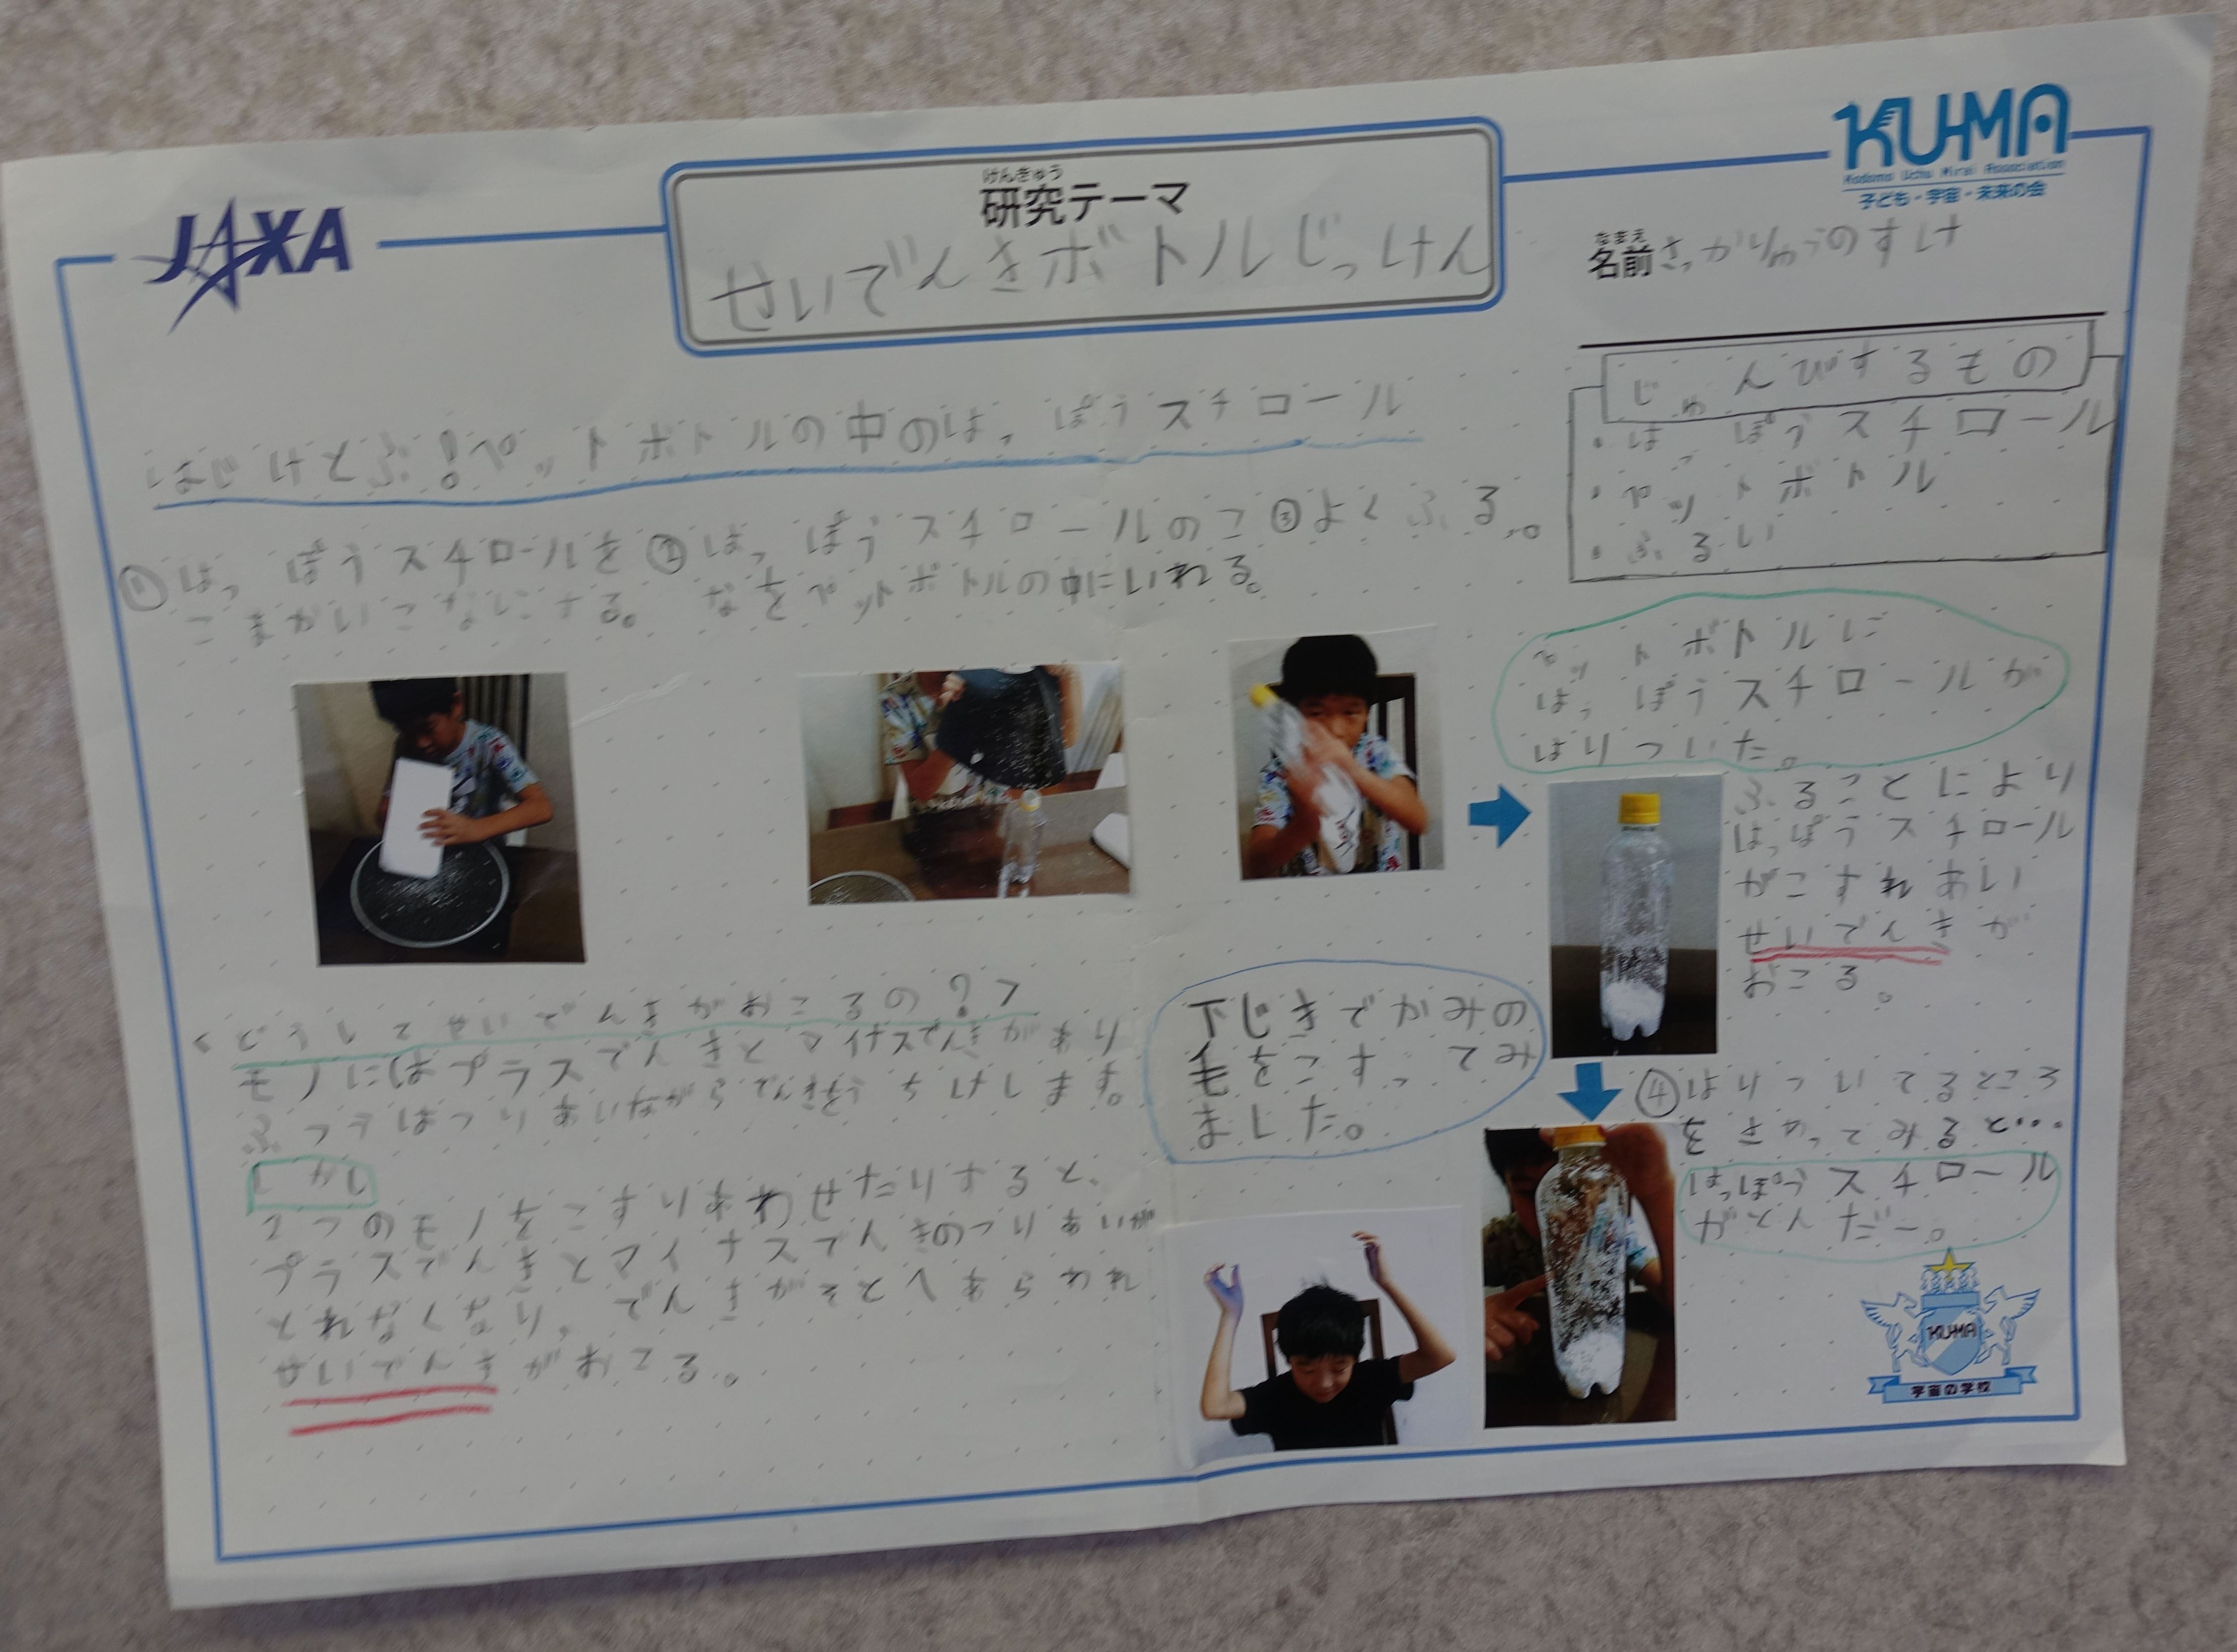 JAXA
けんきゅう
研究テーマ
せいでんきボトルじっけん
KUMA
Kodomo Uchu Mirai Association
子ども・宇宙・未来の会
なまえ
名前 さっかりゅうのすけ
じゅんびするもの
・はっぽうスチロール
・ペットボトル
・ふるい
はじけとぶ!ペットボトルの中のはっぽうスチロール
①はっぽうスチロールを
こまかいこなにする。
②はっぽうスチロールのこ
なをペットボトルの中にいれる。
③よくふる。
ペットボトルに
はっぽうスチロールが
はりついた。
ふることにより
はっぽうスチロール
がこすれあい
せいでんきが
おこる。
④はりついてるところ
をさわってみると…
はっぽうスチロール
がとんだー。
<どうしてせいでんきがおこるの?>
モノにはプラスでんきとマイナスでんきがあり
ふつうはつりあいながらでんきをうちけします。
しかし
2つのモノをこすりあわせたりすると、
プラスでんきとマイナスでんきのつりあいが
とれなくなり、でんきがそとへあらわれ
せいでんきがおこる。
下じきでかみの
毛をこすってみ
ました。
KUMA
宇宙の学校